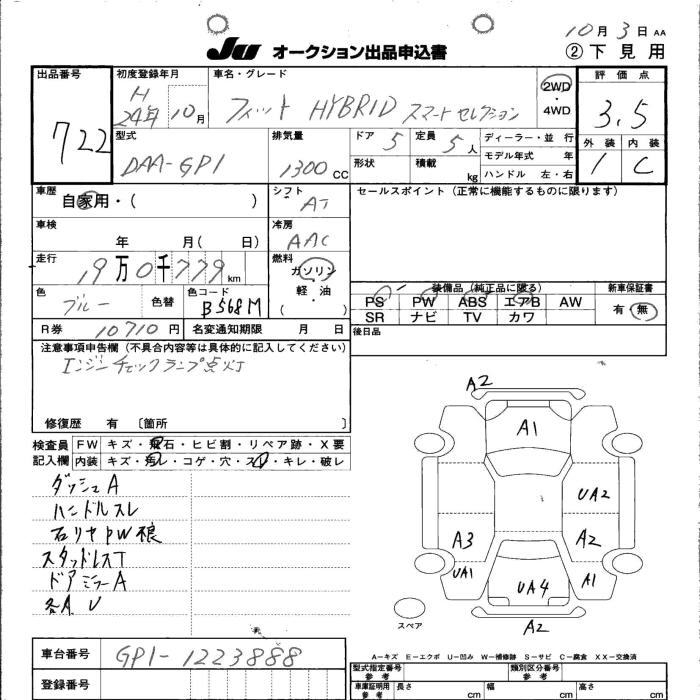 10月3日 AA
JU オークション出品申込書 ②下見用
出品番号 722
初度登録年月 H 24年10月
車名・グレード フィット HYBRID スマートセレクション
2WD・4WD
評価点 3.5
外装 1 内装 C
型式 DAA-GP1
排気量 1300CC
ドア 5 定員 5人
形状 積載 kg
ディーラー・並行
モデル年式 年
ハンドル 左・右
車歴 自家用・( )
シフト AT
セールスポイント(正常に機能するものに限ります)
車検 年 月( 日)
冷房 AAC
走行 19万0千779km
燃料 ガソリン・軽油 ( )
色 ブルー 色替 色コード B568M
装備品(純正品に限る)
PS PW ABS エアB AW
SR ナビ TV カワ
新車保証書 有・無
R券 10710円 名変通知期限 月 日
後日品
注意事項申告欄(不具合内容等は具体的に記入してください)
エンジンチェックランプ点灯
修復歴 有 〔箇所 〕
検査員記入欄
FW キズ・飛石・ヒビ割・リペア跡・X要
内装 キズ・汚レ・コゲ・穴・スレ・キレ・破レ
ダッシュA
ハンドルスレ
石リヤPW
スタッドレスT
ドアミラーA
各A U
A2
A1
UA2
A3
A2
UA1
UA4
A1
スペア
A2
A-キズ E-エクボ U-凹み W-補修跡 S-サビ C-腐食 XX-交換済
車台番号 GP1-1223888
登録番号
型式指定番号 参考
類別区分番号 参考
車庫証明用 参考 長さ cm 幅 cm 高さ cm